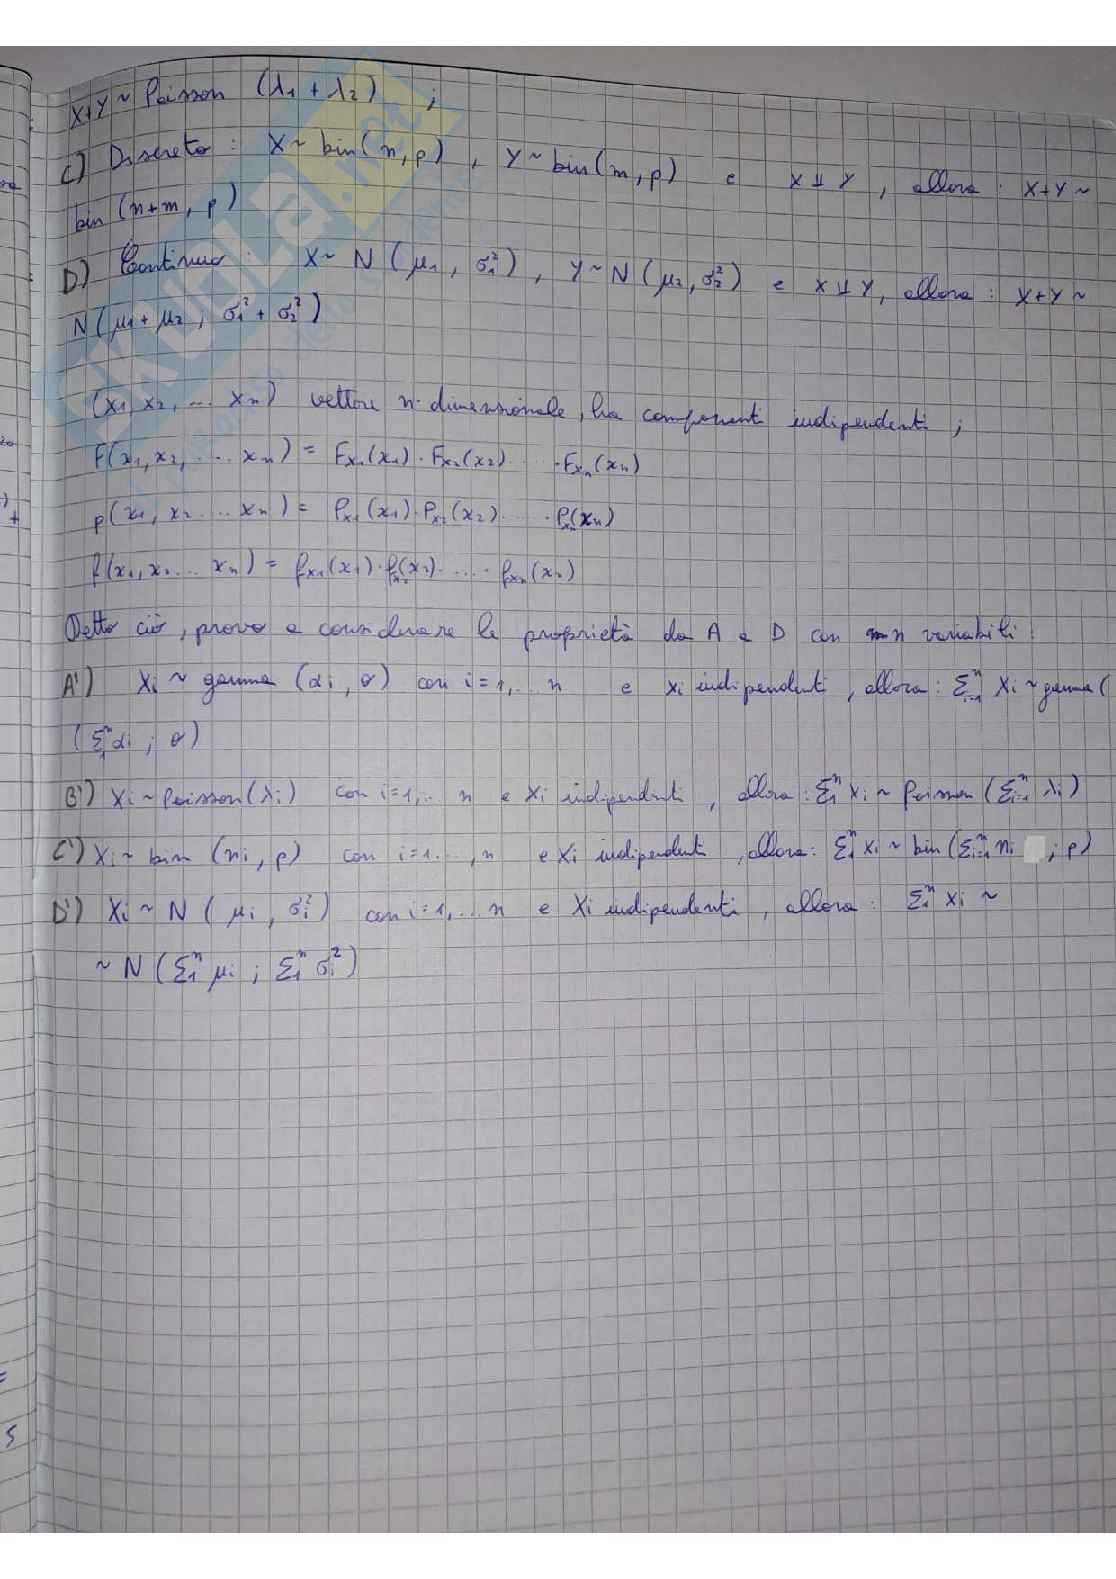 X+Y ~ Poisson (λ₁ + λ₂) ;
C) Discreto : X ~ bin(n, p) , Y ~ bin(m, p) e X ⊥ Y , allora : X+Y ~
bin (n+m, p)
D) Continuo : X ~ N (μ₁ , σ₁²) , Y ~ N (μ₂, σ₂²) e X ⊥ Y, allora : X+Y ~
N (μ₁ + μ₂ ; σ₁² + σ₂²)
(x₁, x₂, ... xₙ) vettore n-dimensionale, ha componenti indipendenti ;
F(x₁, x₂, ... xₙ) = Fx₁(x₁) · Fx₂(x₂) ..... · Fxₙ(xₙ)
p(x₁, x₂ ... xₙ) = Px₁(x₁) · Px₂(x₂) ..... · Pxₙ(xₙ)
f(x₁, x₂ ... xₙ) = fx₁(x₁) · fx₂(x₂) · .... · fxₙ(xₙ)
Detto ciò, provo a considerare le proprietà da A a D con n variabili :
A') Xi ~ gamma (αi , θ) con i = 1, ... n e xi indipendenti , allora : Σⁿᵢ₌₁ Xi ~ gamma (
( Σ₁ⁿ αi ; θ)
B') Xi ~ Poisson(λi) con i=1, ... n e Xi indipendenti , allora : Σ₁ⁿ Xi ~ Poisson (Σⁿᵢ₌₁ λi)
C') Xi ~ bin (ni, p) con i=1...., n e Xi indipendenti , allora : Σ₁ⁿ Xi ~ bin (Σⁿᵢ₌₁ ni ; p)
D') Xi ~ N ( μi , σi²) con i=1, ... n e Xi indipendenti , allora : Σ₁ⁿ Xi ~
~ N ( Σ₁ⁿ μi ; Σ₁ⁿ σi²)
SKUOLA.net